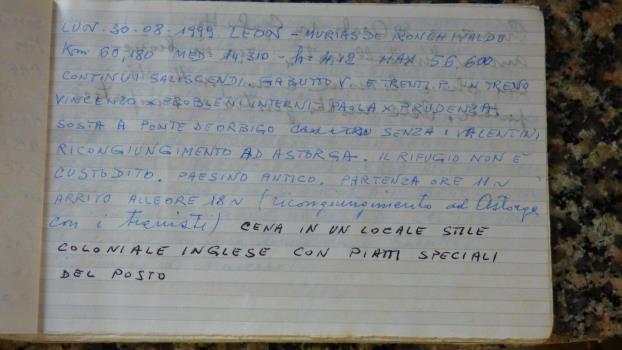 LUN. 30-08-1999 LEON - MURIAS DE RONCHIVALDO
Km 60,180 MED 14,310 - h 4,12 MAX 56,600
CONTINUI SALISCENDI. GABUTTO V. E TRENTI P. IN TRENO
VINCENZO X PROBLEMI INTERNI PAOLA X PRUDENZA
SOSTA A PONTE DE ORBIGO SENZA I VALENTINI
RICONGIUNGIMENTO AD ASTORGA. IL RIFUGIO NON È
CUSTODITO. PAESINO ANTICO. PARTENZA ORE 11
ARRIVO ALLE ORE 18 (ricongiungimento ad Astorga
con i trenisti) CENA IN UN LOCALE STILE
COLONIALE INGLESE CON PIATTI SPECIALI
DEL POSTO